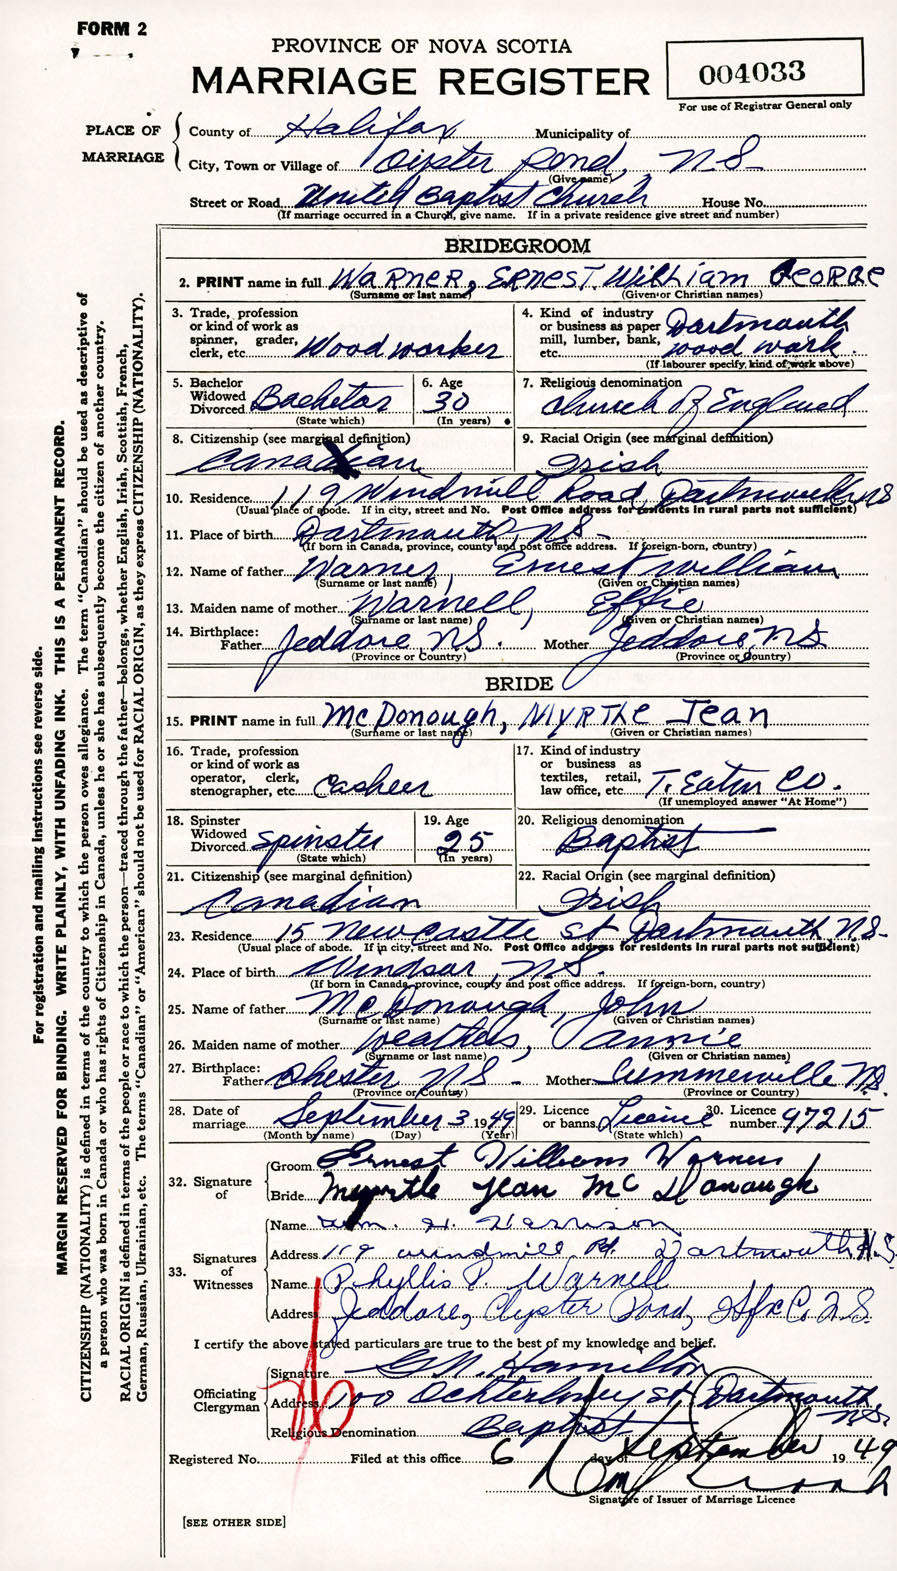 FORM 2
PROVINCE OF NOVA SCOTIA
MARRIAGE REGISTER
004033
For use of Registrar General only
PLACE OF MARRIAGE
County of Halifax Municipality of
City, Town or Village of Oipster Pond, N-S-
(Give name)
Street or Road United Baptist Church House No.
(If marriage occurred in a Church, give name. If in a private residence give street and number)
BRIDEGROOM
2. PRINT name in full WARNER, ERNEST. William GEORGE
(Surname or last name) (Given or Christian names)
3. Trade, profession or kind of work as spinner, grader, clerk, etc. Wood worker
4. Kind of industry or business as paper mill, lumber, bank, etc. Dartmouth wood work.
(If labourer specify, kind of work above)
5. Bachelor Widowed Divorced Bachelor
(State which)
6. Age 30
(In years)
7. Religious denomination
Church of England
8. Citizenship (see marginal definition)
Canadian
9. Racial Origin (see marginal definition)
Irish
10. Residence 119 Windmill Road, Dartmouth NS
(Usual place of abode. If in city, street and No. Post Office address for residents in rural parts not sufficient)
11. Place of birth Dartmouth, NS-
(If born in Canada, province, county and post office address. If foreign-born, country)
12. Name of father Warner, Ernest William
(Surname or last name) (Given or Christian names)
13. Maiden name of mother Warnell, Effie
(Surname or last name) (Given or Christian names)
14. Birthplace: Father Jeddore, NS. Mother Jeddore, NS
(Province or Country) (Province or Country)
BRIDE
15. PRINT name in full McDonough, MYRTle Jean
(Surname or last name) (Given or Christian names)
16. Trade, profession or kind of work as operator, clerk, stenographer, etc. Casheer
17. Kind of industry or business as textiles, retail, law office, etc. T. Eaton Co.
(If unemployed answer "At Home")
18. Spinster Widowed Divorced Spinster
(State which)
19. Age 25
(In years)
20. Religious denomination
Baptist
21. Citizenship (see marginal definition)
Canadian
22. Racial Origin (see marginal definition)
Irish
23. Residence 15 Newcastle St Dartmouth, N.S-
(Usual place of abode. If in city, street and No. Post Office address for residents in rural parts not sufficient)
24. Place of birth Windsor, N.S-
(If born in Canada, province, county and post office address. If foreign-born, country)
25. Name of father McDonough, John
(Surname or last name) (Given or Christian names)
26. Maiden name of mother Weathers, Annie
(Surname or last name) (Given or Christian names)
27. Birthplace: Father Chester NS - Mother Summerville NS.
(Province or Country) (Province or Country)
28. Date of marriage September 3 1949
(Month by name) (Day) (Year)
29. Licence or banns Licence
(State which)
30. Licence number 97215
32. Signature of
Groom Ernest William Warner
Bride Myrtle Jean McDonough
33. Signatures of Witnesses
Name Wm. H. Harrison
Address 119 Windmill Rd. Dartmouth N.S
Name Phyllis P. Warnell
Address Jeddore, Oyster Pond, Hfx Co. N.S
I certify the above stated particulars are true to the best of my knowledge and belief.
Officiating Clergyman
Signature G N. Hamilton
Address 100 Ochterloney St Dartmouth, NS.
Religious Denomination Baptist
Registered No. Filed at this office 6 day of September 1949
Signature of Issuer of Marriage Licence
[SEE OTHER SIDE]
For registration and mailing instructions see reverse side.
MARGIN RESERVED FOR BINDING. WRITE PLAINLY, WITH UNFADING INK. THIS IS A PERMANENT RECORD.
CITIZENSHIP (NATIONALITY) is defined in terms of the country to which the person owes allegiance. The term "Canadian" should be used as descriptive of
a person who was born in Canada or who has rights of Citizenship in Canada, unless he or she has subsequently become the citizen of another country.
RACIAL ORIGIN is defined in terms of the people or race to which the person—traced through the father—belongs, whether English, Irish, Scottish, French,
German, Russian, Ukrainian, etc. The terms "Canadian" or "American" should not be used for RACIAL ORIGIN, as they express CITIZENSHIP (NATIONALITY).